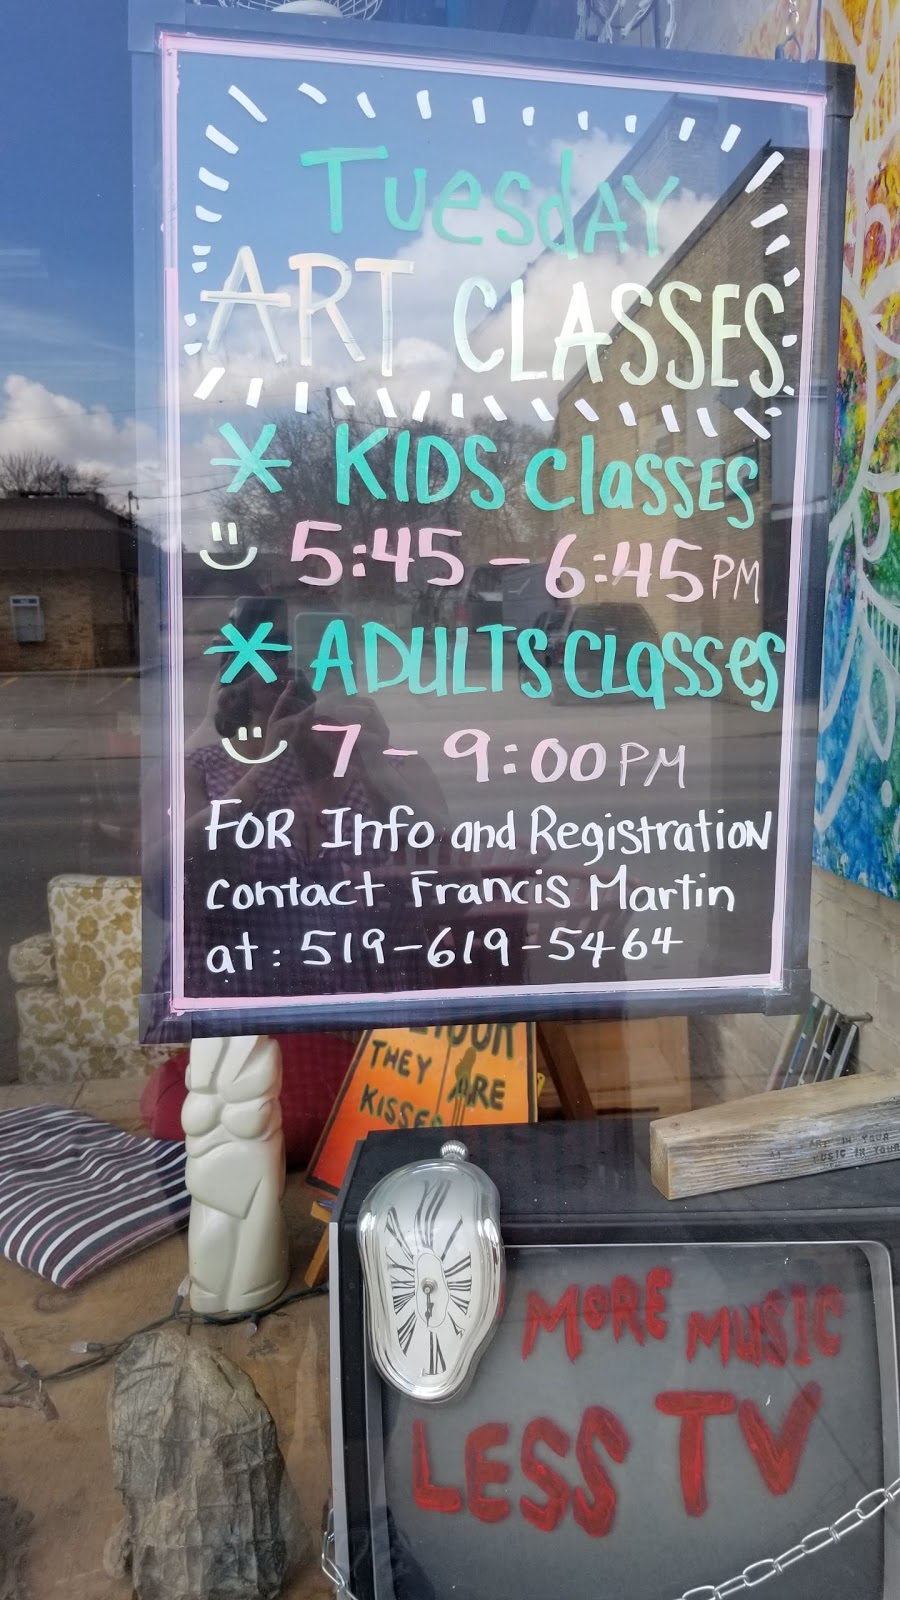 TuesdAY
ART CLASSES
* KIDS Classes
5:45 - 6:45 PM
* ADULTS Classes
7 - 9:00 PM
FOR Info and Registration
contact Francis Martin
at: 519-619-5464
THEY ARE
KISSES
ART IN YOUR
MUSIC IN YOUR
MORE MUSIC
LESS TV